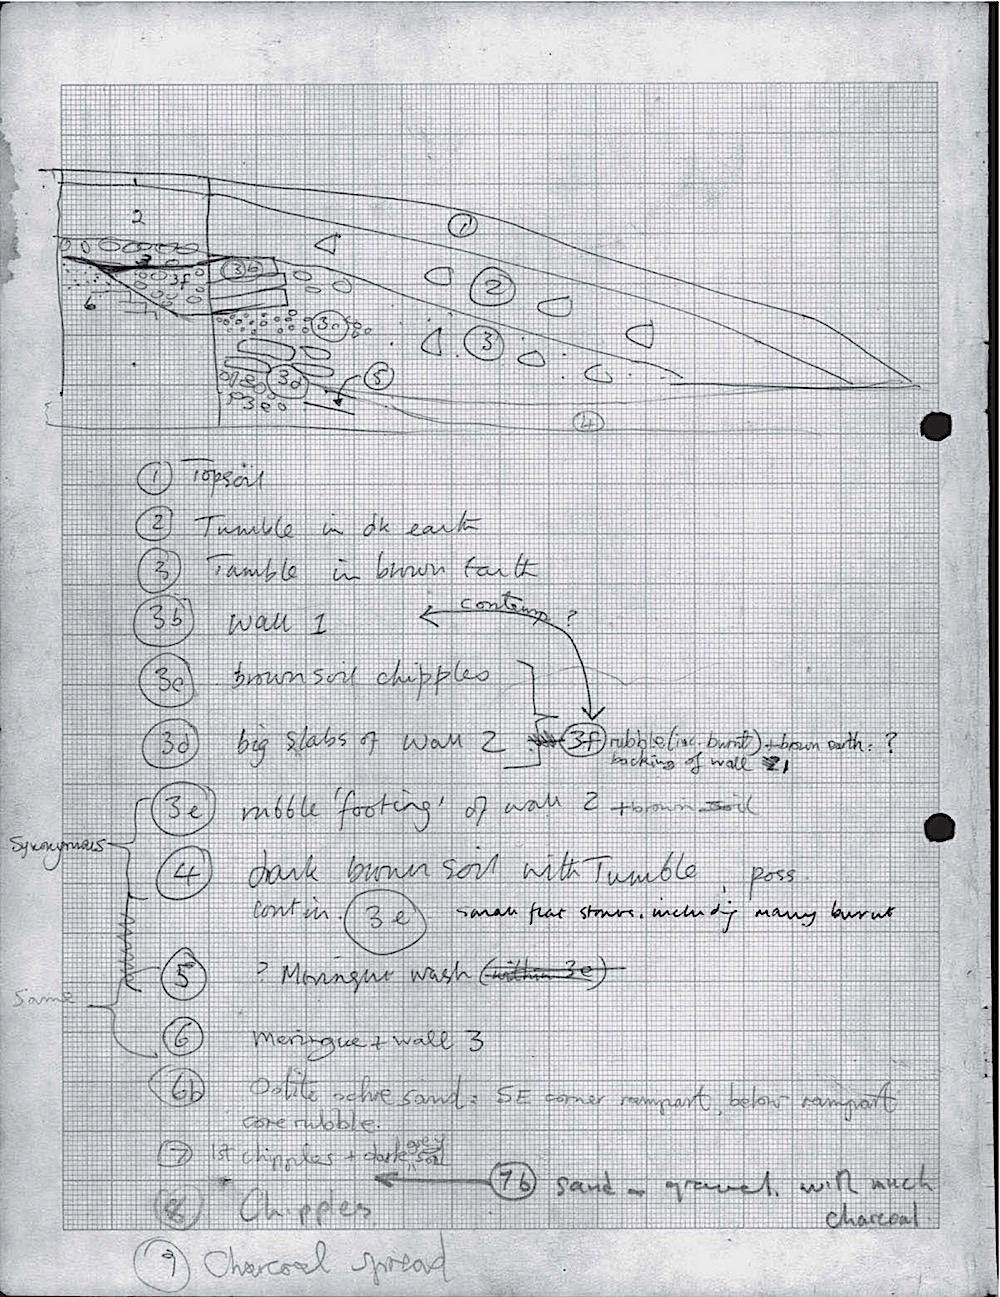 1
2
3b
2
3
3f
6
3c
3
3d
5
3e
4
1 Topsoil
2 Tumble in dk earth
3 Tumble in brown Earth
contemp ?
3b wall 1
3c brown soil chipples
3d big slabs of wall 2
3f rubble (inc. burnt) + brown earth: ?
backing of wall 1
3e rubble 'footing' of wall 2 + brown soil
Synonymous
4 dark brown soil with Tumble, poss.
contin. 3e small flat stones, including many burnt
5 ? Meringue wash (within 3e)
Same
6 Meringue + wall 3
6b Oolite ochre sand: SE corner rampart, below rampart
core rubble.
grey
7 1st chipples + dark soil
7b sand - gravel, with much
charcoal.
8 Chipples
9 Charcoal spread